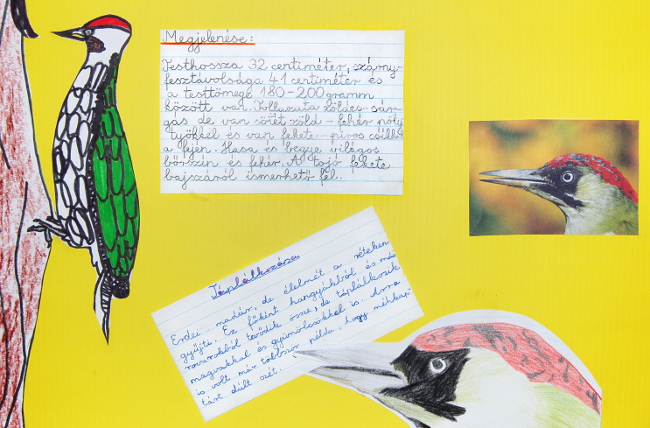 Megjelenése:
Testhossza 32 centiméter, szárny-
fesztávolsága 41 centiméter és
a testtömege 180-200 gramm
között van. Tollazata zöldes-sár-
gás de van sötét zöld - fehér pöty
työkkel és van fekete - piros csíkkal
a fején. Hasa és begye világos
bőrszín és fehér. A tojó fekete
bajszáról ismerhető fel.
Táplálkozása
Erdei madár, de élelmét a réteken
gyűjti. Ez főként hangyákból és más
rovarokból tevődik össze, de táplálkozik
magvakkal és gyümölcsökkel is. Arra
is volt már többször példa, hogy méhkap-
tárt dúlt szét.